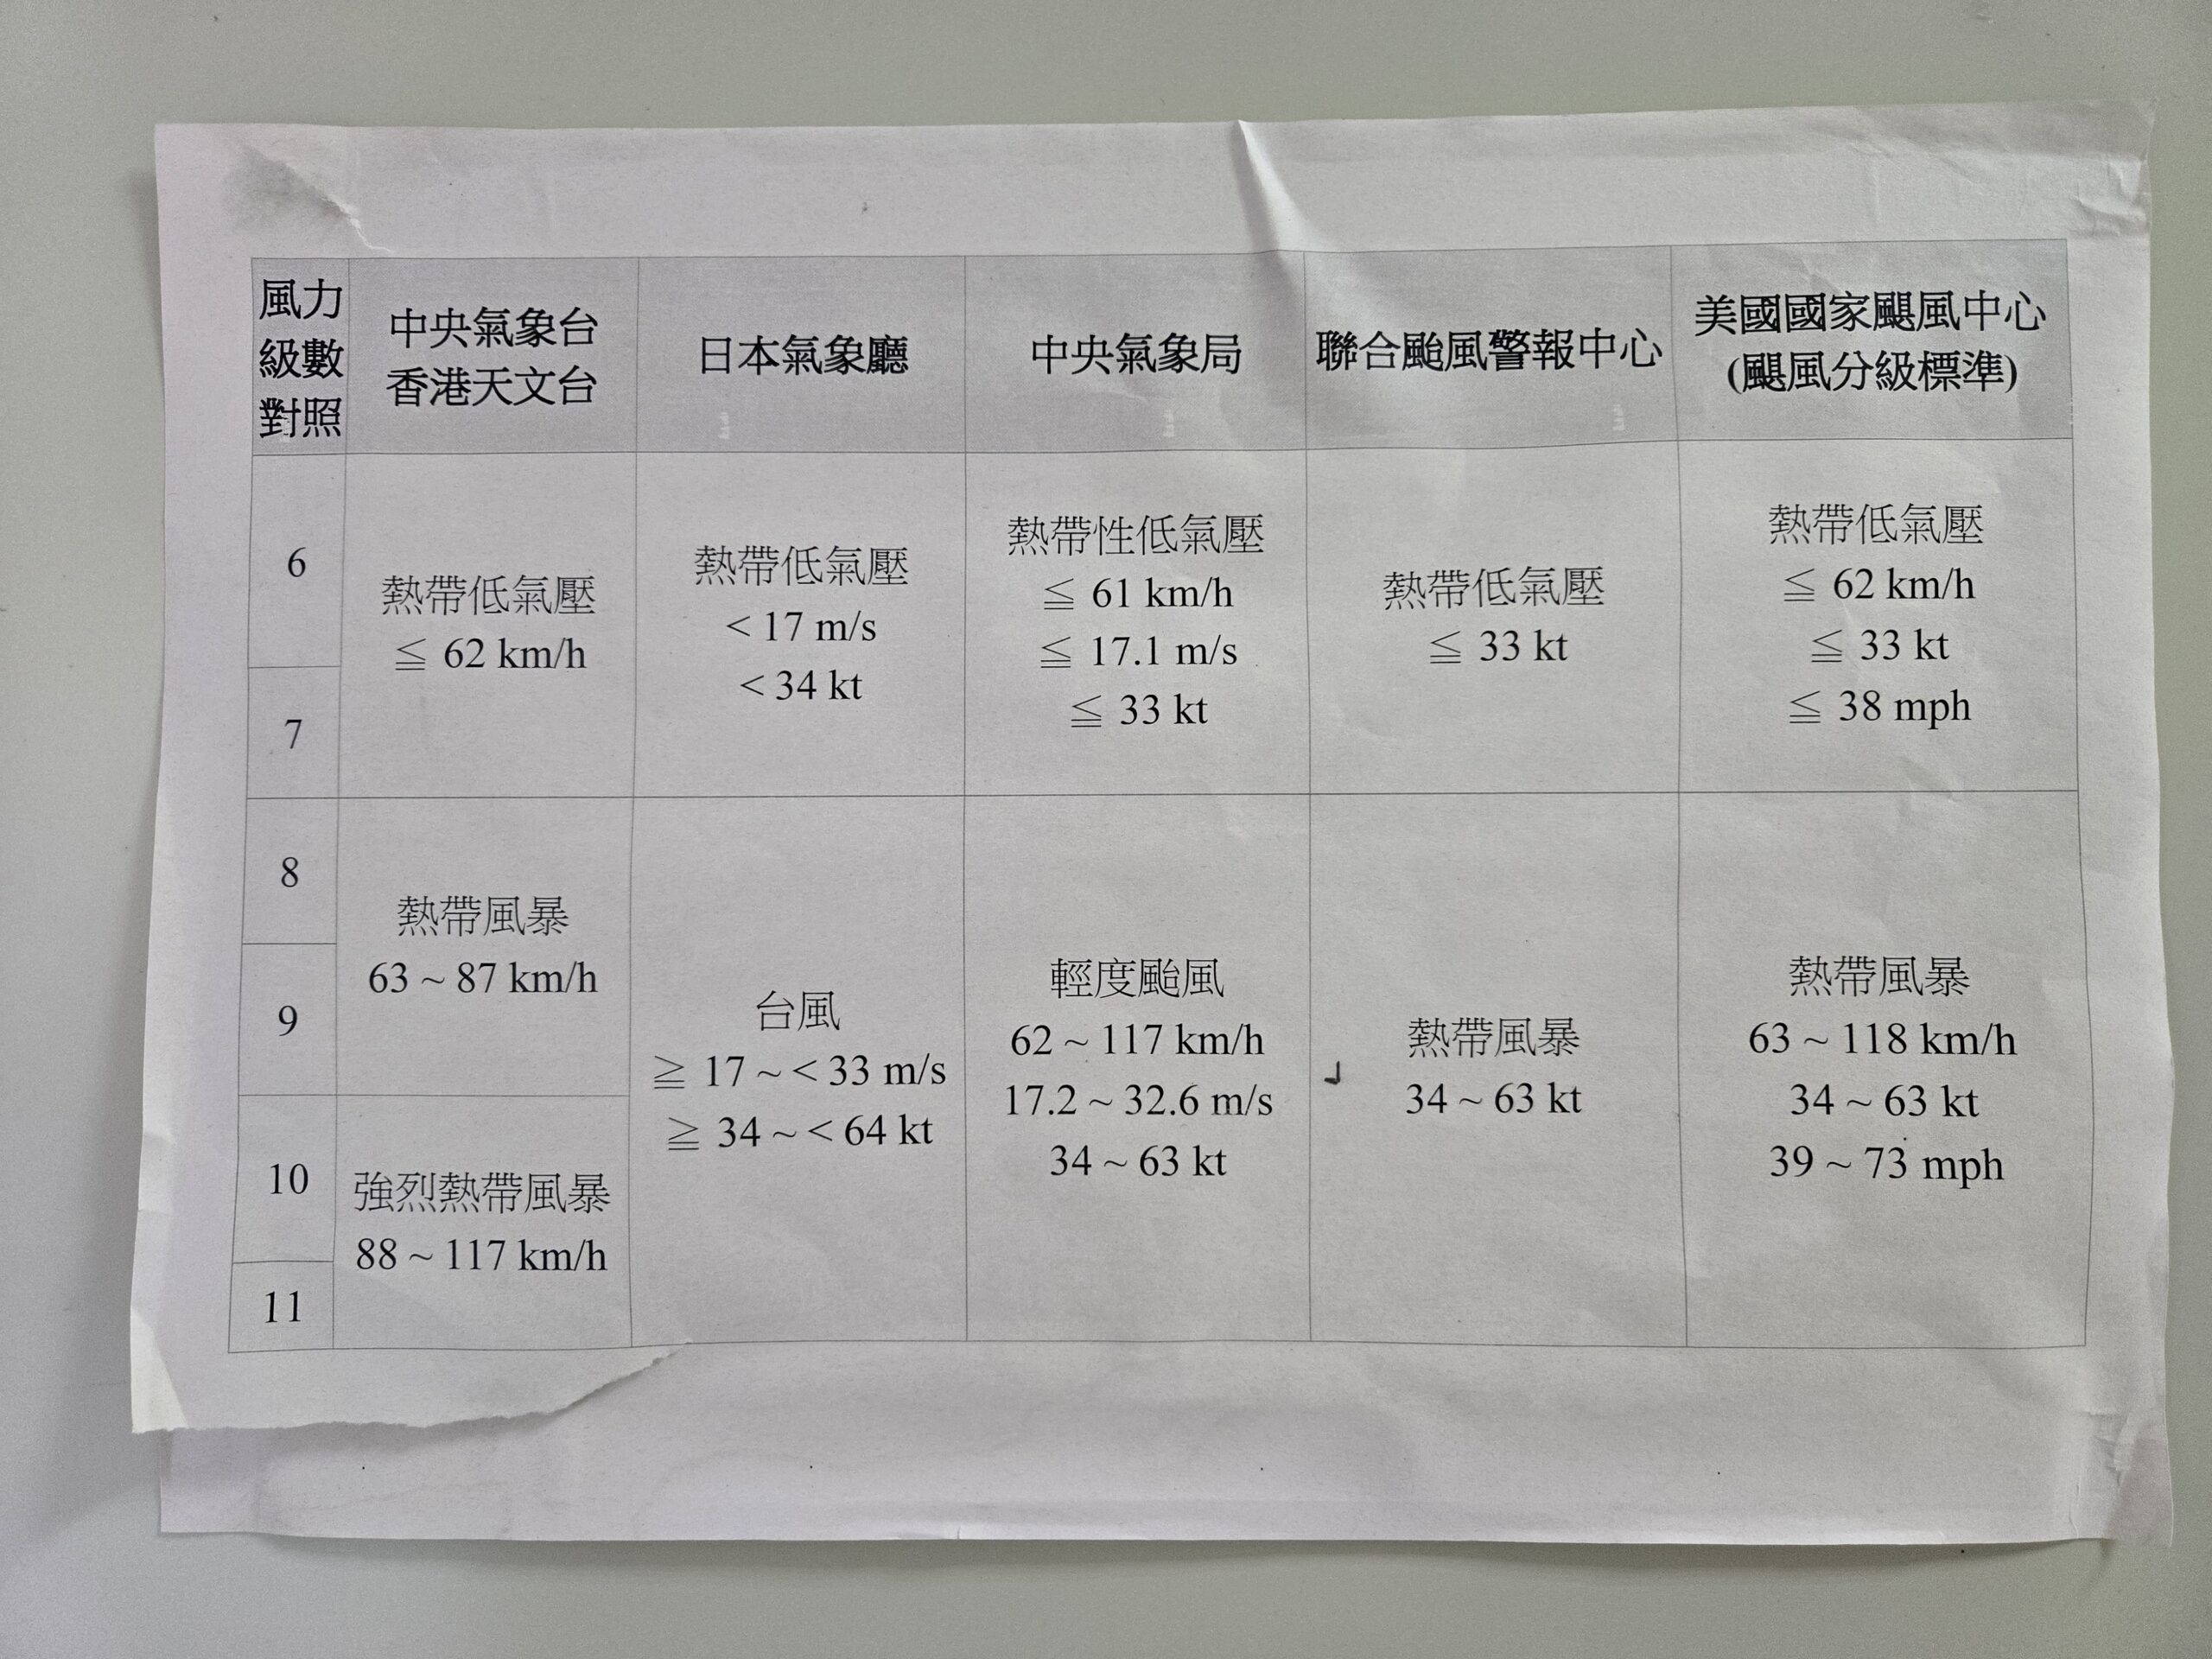 風力
級數
對照
中央氣象台
香港天文台
日本氣象廳
中央氣象局
聯合颱風警報中心
美國國家颶風中心
(颶風分級標準)
6
7
熱帶低氣壓
≦ 62 km/h
熱帶低氣壓
< 17 m/s
< 34 kt
熱帶性低氣壓
≦ 61 km/h
≦ 17.1 m/s
≦ 33 kt
熱帶低氣壓
≦ 33 kt
熱帶低氣壓
≦ 62 km/h
≦ 33 kt
≦ 38 mph
8
9
熱帶風暴
63 ~ 87 km/h
10
11
強烈熱帶風暴
88 ~ 117 km/h
台風
≧ 17 ~ < 33 m/s
≧ 34 ~ < 64 kt
輕度颱風
62 ~ 117 km/h
17.2 ~ 32.6 m/s
34 ~ 63 kt
熱帶風暴
34 ~ 63 kt
熱帶風暴
63 ~ 118 km/h
34 ~ 63 kt
39 ~ 73 mph